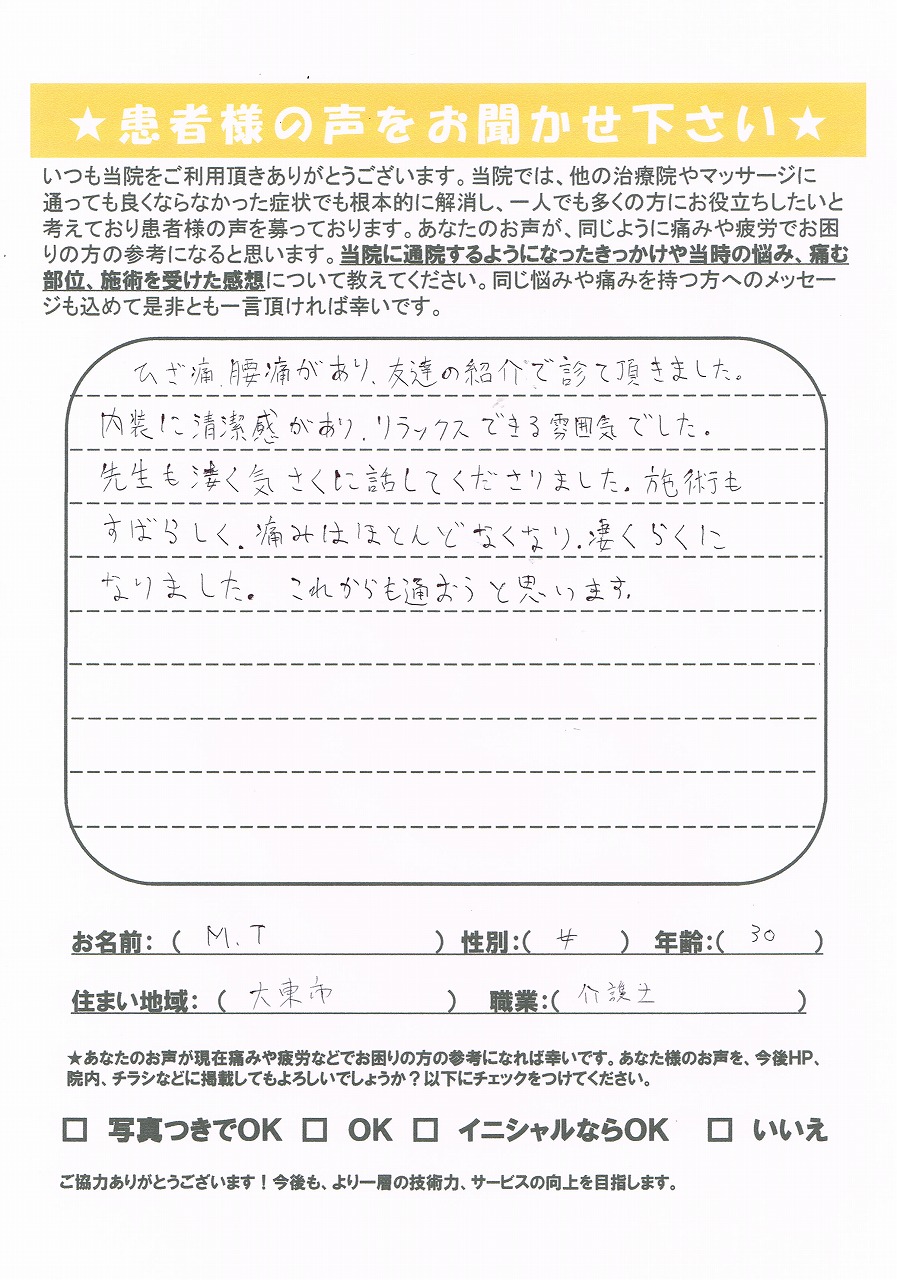 ★患者様の声をお聞かせ下さい★
いつも当院をご利用頂きありがとうございます。当院では、他の治療院やマッサージに
通っても良くならなかった症状でも根本的に解消し、一人でも多くの方にお役立ちしたいと
考えており患者様の声を募っております。あなたのお声が、同じように痛みや疲労でお困
りの方の参考になると思います。当院に通院するようになったきっかけや当時の悩み、痛む
部位、施術を受けた感想について教えてください。同じ悩みや痛みを持つ方へのメッセー
ジも込めて是非とも一言頂ければ幸いです。
ひざ痛、腰痛があり、友達の紹介で診て頂きました。
内装に清潔感があり、リラックスできる雰囲気でした。
先生も凄く気さくに話してくださりました。施術も
すばらしく、痛みはほとんどなくなり、凄くらくに
なりました。これからも通おうと思います。
お名前：（ M.T ） 性別：（ 女 ） 年齢：（ 30 ）
住まい地域：（ 大東市 ） 職業：（ 介護士 ）
★あなたのお声が現在痛みや疲労などでお困りの方の参考になれば幸いです。あなた様のお声を、今後HP、
院内、チラシなどに掲載してもよろしいでしょうか？以下にチェックをつけてください。
□ 写真つきでOK □ OK □ イニシャルならOK □ いいえ
ご協力ありがとうございます！今後も、より一層の技術力、サービスの向上を目指します。